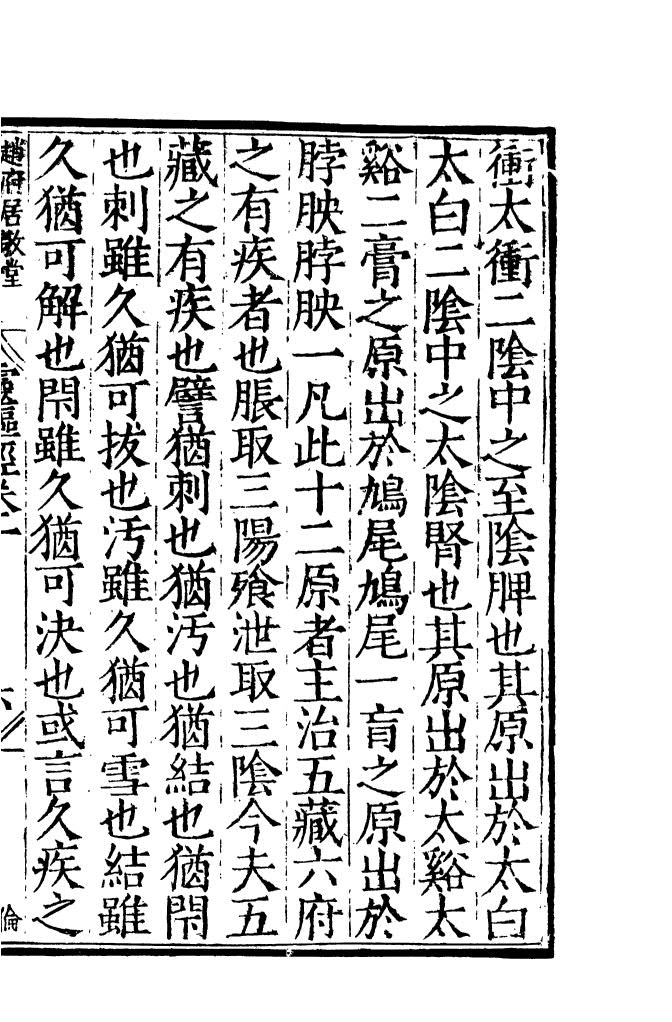 衝太衝二陰中之至陰脾也其原出於太白
太白二陰中之太陰腎也其原出於太谿太
谿二膏之原出於鳩尾鳩尾一肓之原出於
脖胦脖胦一凡此十二原者主治五藏六府
之有疾者也脹取三陽飱泄取三陰今夫五
藏之有疾也譬猶刺也猶汚也猶結也猶閇
也刺雖久猶可拔也汚雖久猶可雪也結雖
久猶可解也閇雖久猶可決也或言久疾之
趙府居敬堂
靈樞經卷一
六
倫